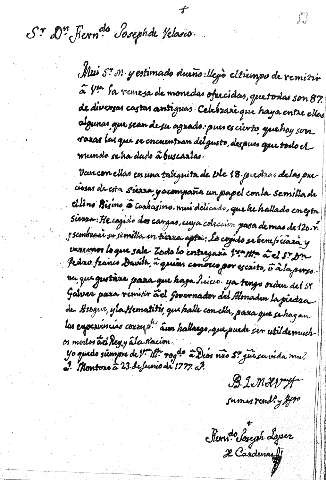 +
Sr. Dn. Fern.do Joseph de Velasco.
Mui Sr. m. y estimado dueño: llegò el tiempo de remitir
à Vm. la remesa de monedas ofrecidas, que todas son 87.
de diversas castas antiguas. Celebrarè que haya entre ellas
algunas, que sean de su agrado: pues es cierto que hoy son
raras las que se encuentran del gusto, despues que todo el
mundo se ha dado à buscarlas.
Van con ellas en una taleguita de 18. piedras de las pre
ciosas de esta sierra, y acompaña un papel con la semilla de
el lino Bisino, ò Carbasino, mui delicado, que he hallado en esta
sierra. He cogido dos cargas, cuya coleccion pasa de mas de 120
y sembrarè su semilla en tierra apta: Lo cogido se beneficiarà, y
veremos lo que sale. Todo lo entregarà à el Sr. Dn.
Pedro Franco Davila, à quien conozco por escrito, ò à la perso
na, que gustare para que haga juicio. ya tengo orden del Sr.
Galvez para remitir à el Governador del Almaden la piedra
de Azogue, y la Hematitis, que hallè con ella, para que se hagan
las experiencias à un hallazgo, que puede ser util de muchos
modos à el Rey, y à la Nacion.
Yo quedo siempre de Vm. rog.do à Dios nro Sr. gue su vida
Montoro à 23 de Junio de 1777.
B. L. M. de Vm.
su mas rend.o y
Fern.do Joseph Lopez
de Cardenas